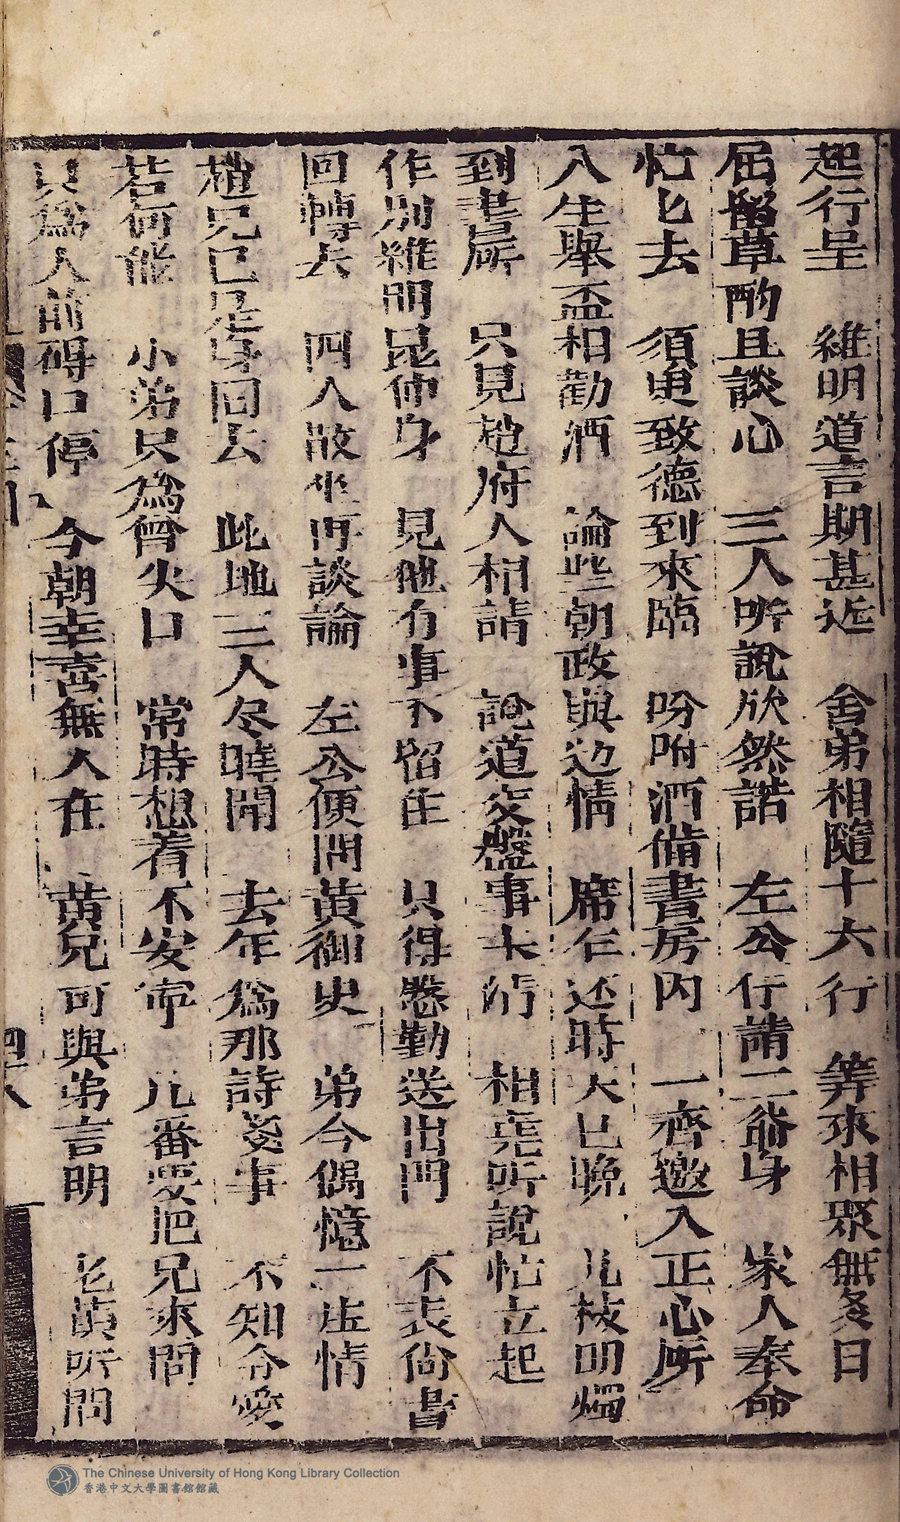 起行呈　維明道言期甚近　舍弟相隨十六行　筭來相聚無多日
屈留草酌且談心　三人听說欣然諾　左公仔請二翁身　家人奉命
忙忙去　須臾致德到來臨　吩咐酒備書房內　一齊邀入正心所
入坐舉盃相勸酒　論些朝政與边情　席乍还時天已晚　几枝明燭
到書房　只見趙府人相請　說道交盤事未清　相堯听說忙立起
作別維明昆仲身　見他有事不留住　只得慇勤送出門　不表尚書
回轉去　四人敀坐再談論　左公便問黃御史　弟今偶憶一庄情
趙兄已是身回去　此地三人尽曉聞　去年為那詩箋事　不知令愛
若何能　小弟只為曾失口　常時想着不安寧　几番要把兄來問
只為人前碍口停　今朝幸喜無人在　黃兄可與弟言明　老黃听問
四八
The Chinese University of Hong Kong Library Collection
香港中文大學圖書館館藏